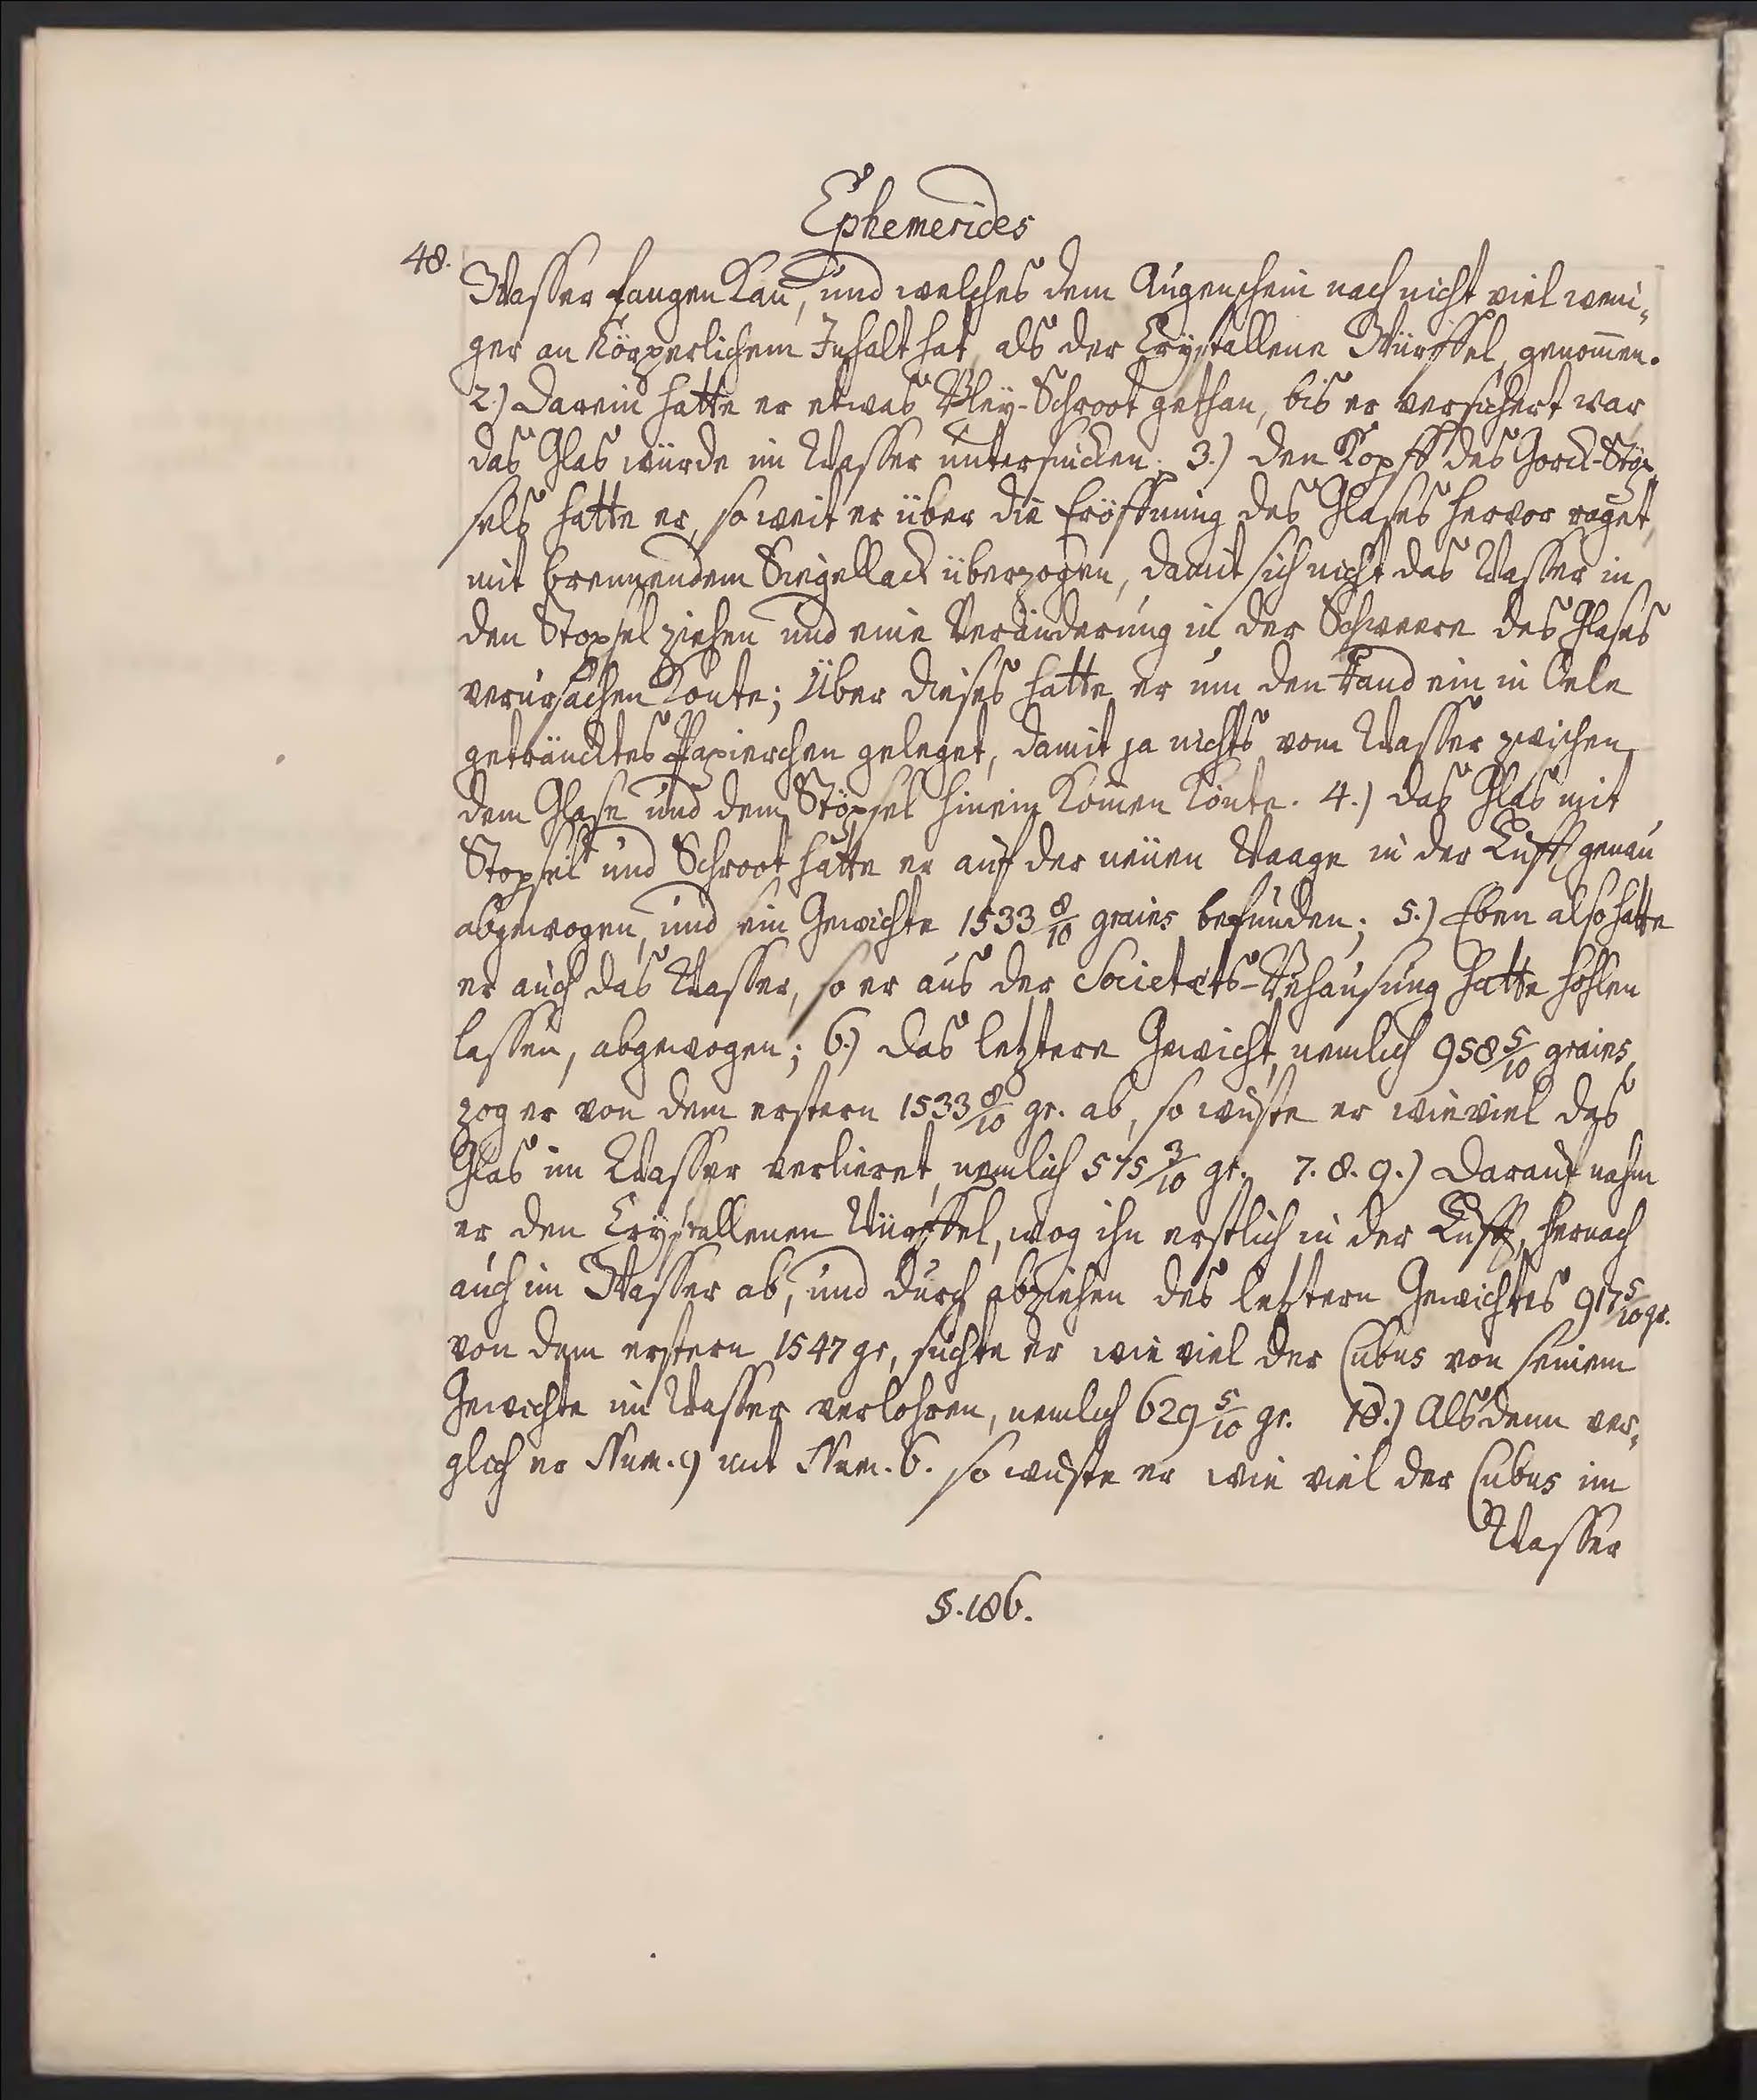 Ephemerides
48.
Wasser fangen kan, und welches dem Augenschein nach nicht viel weni-
ger an Körperlichem Inhalt hat, als der Crystallene Würffel, genom̄en.
2.) Darein hatte er etwas Bley-Schroot gethan, bis er versichert war
das Glas würde im Wasser untersincken. 3.) den Kopff des Gorck-Stöp-
sels hatte er, so weit er über die Eröffnung des Glases hervor raget,
mit brennendem Siegellack überzogen, damit sich nicht das Wasser in
den Stopsel ziehen und eine Veränderung in der Schweere des Glases
verursachen konte; Über dieses hatte er um den Rand ein in Oele
geträncktes Papierchen geleget, damit ja nichts vom Wasser zwischen
dem Glase und dem Stöpsel hinein kom̄en könte. 4.) das Glas mit
Stopsel und Schroot hatte er auf der neüen Waage in der Lufft genau
abgewogen, und ein Gewichte 1533 8/10 grains befunden; 5.) Eben also hatte
er auch das Wasser, so er aus der Societæts-Behausung hatte hohlen
lassen, abgewogen; 6.) das letztere Gewicht, nemlich 958 5/10 grains,
zog er von dem erstern 1533 8/10 gr. ab, so wuste er wie viel das
Glas im Wasser verlieret, nemlich 575 3/10 gr. 7. 8. 9.) Darauf nahm
er den Crystallenen Würffel, wog ihn erstlich in der Lufft, hernach
auch im Wasser ab, und durch abziehen des letztern Gewichtes 917 5/10 gr.
von dem erstern 1547 gr, suchte er wie viel der Cubus von seinem
Gewichte im Wasser verlohren, nemlich 629 5/10 gr. 10.) Alsdenn ver-
glich er Num. 9 mit Num. 6. so wuste er wie viel der Cubus im
Wasser
§. 186.